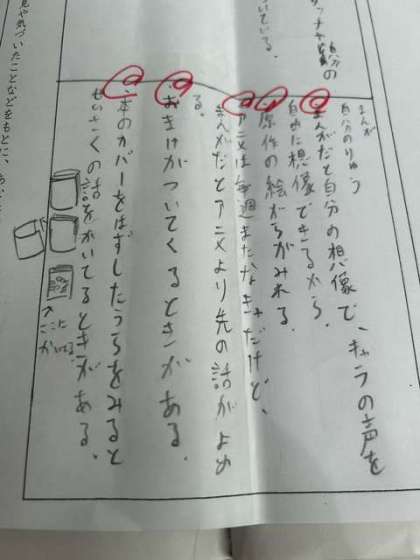 自分の
ッチャや質
っている。
まんが
自分のりゆう
まんがだと自分の想像で、キャラの声を
自由に想像できるから。
原作の絵がらがみれる。
アニメは毎週またなきゃだけど、
まんがだとアニメより先の話がよめ
る。
おまけがついてくるときがある。
本のカバーをはずしたうらをみると
せいさくの話をかいてるときがある。
ここに
かいてる
見や気づいたことなどをもとに、